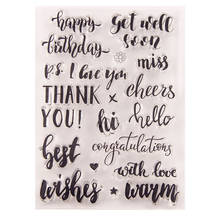 happy
birthday
get well
soon
p.s. I love you
miss
THANK x
YOU!
cheers
hi
hello
congratulations
best
wishes
with love
warm